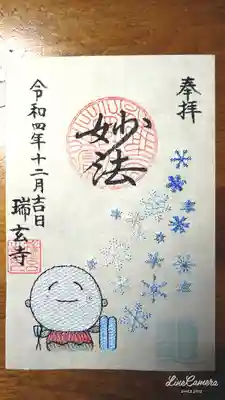 奉拝
妙法
令和四年十二月吉日
瑞玄寺
LineCamera